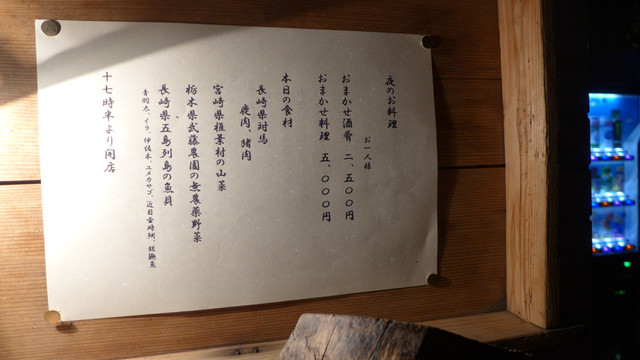 夜のお料理
お一人様
おまかせ酒肴 二、五〇〇円
おまかせ料理 五、〇〇〇円
本日の食材
長崎県対馬
鹿肉、猪肉
宮崎県椎葉村の山菜
栃木県武藤農園の無農薬野菜
長崎県五島列島の魚貝
青羽太、イラ、伊佐木、ユメカサゴ、近目金時鯛、
十七時半より開店